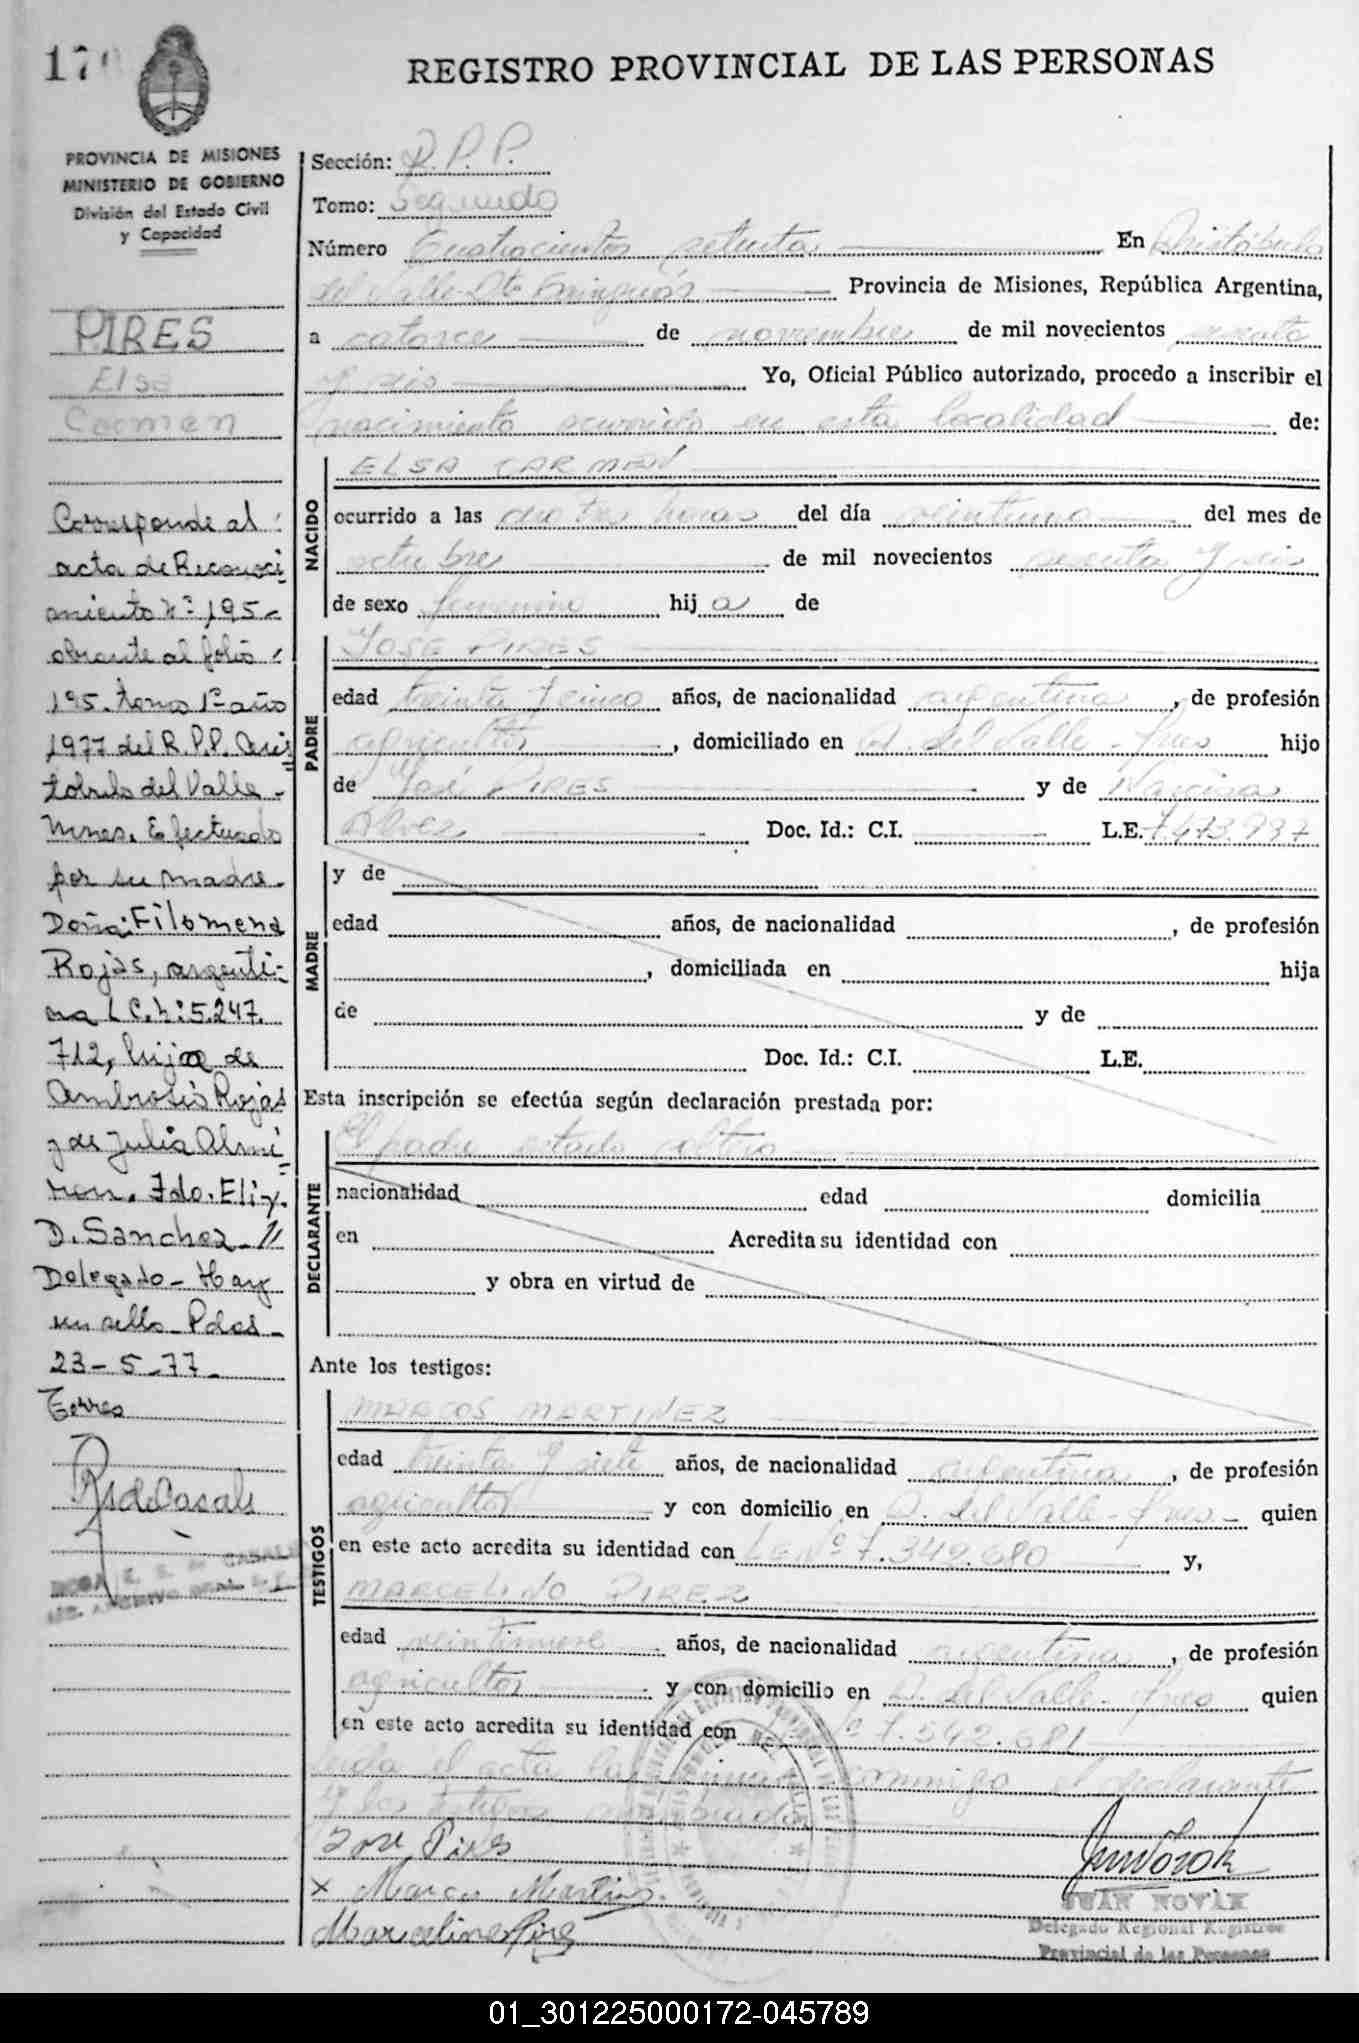 170
REGISTRO PROVINCIAL DE LAS PERSONAS
PROVINCIA DE MISIONES
MINISTERIO DE GOBIERNO
División del Estado Civil
y Capacidad
PIRES
Elsa
Carmen
Corresponde al
acta de Reconoci
miento Nº 195-
obrante al folio
195. tomo 1º año
1977 del R.P.P. Aris
tobulo del Valle -
Mnes. Efectuado
por su madre.
Doña: Filomena
Rojas, argenti-
na L.C. Nº: 5.247.
712, hija de
Ambrosio Rojas
y de Julia Almi
ron. Fdo. Eliz.
D. Sanchez - //
Delegado - Hay
un sello - Pdas -
23-5-77-
Torres
R S de Casals
ROSA E. S. de CASALS
ARCHIVO GRAL.
Sección: R.P.P.
Tomo: Segundo
Número Cuatrocientos setenta En Aristóbulo
del Valle - Dto Provincia de Misiones, República Argentina,
a catorce de noviembre de mil novecientos sesenta
y seis Yo, Oficial Público autorizado, procedo a inscribir el
nacimiento ocurrido en esta localidad de:
NACIDO
ELSA CARMEN
ocurrido a las horas del día veintiuno del mes de
octubre de mil novecientos sesenta y seis
de sexo femenino hij a de
PADRE
JOSE PIRES
edad treinta y cinco años, de nacionalidad argentina, de profesión
agricultor, domiciliado en A. del Valle - Mnes hijo
de José PIRES y de Narcisa
Alvez Doc. Id.: C.I. L.E. 7.473.997
MADRE
y de
edad años, de nacionalidad , de profesión
, domiciliada en hija
de y de
Doc. Id.: C.I. L.E.
Esta inscripción se efectúa según declaración prestada por:
DECLARANTE
El padre
nacionalidad edad domicilia
en Acredita su identidad con
y obra en virtud de
Ante los testigos:
TESTIGOS
MARCOS MARTINEZ
edad treinta y siete años, de nacionalidad argentina, de profesión
agricultor y con domicilio en A. del Valle - Mnes - quien
en este acto acredita su identidad con L.E. Nº 7.342.680 y,
MARCELINO PIREZ
edad veintinueve años, de nacionalidad argentina, de profesión
agricultor y con domicilio en A. del Valle - Mnes quien
en este acto acredita su identidad con Nº 7.542.681
Leida el acta la firman conmigo el declarante
y los testigos
Jose Pires
x Marcos Martinez
Marcelino Pirez
JUAN NOVAK
Delegado Regional Registros
Provincial de las Personas
01_301225000172-045789